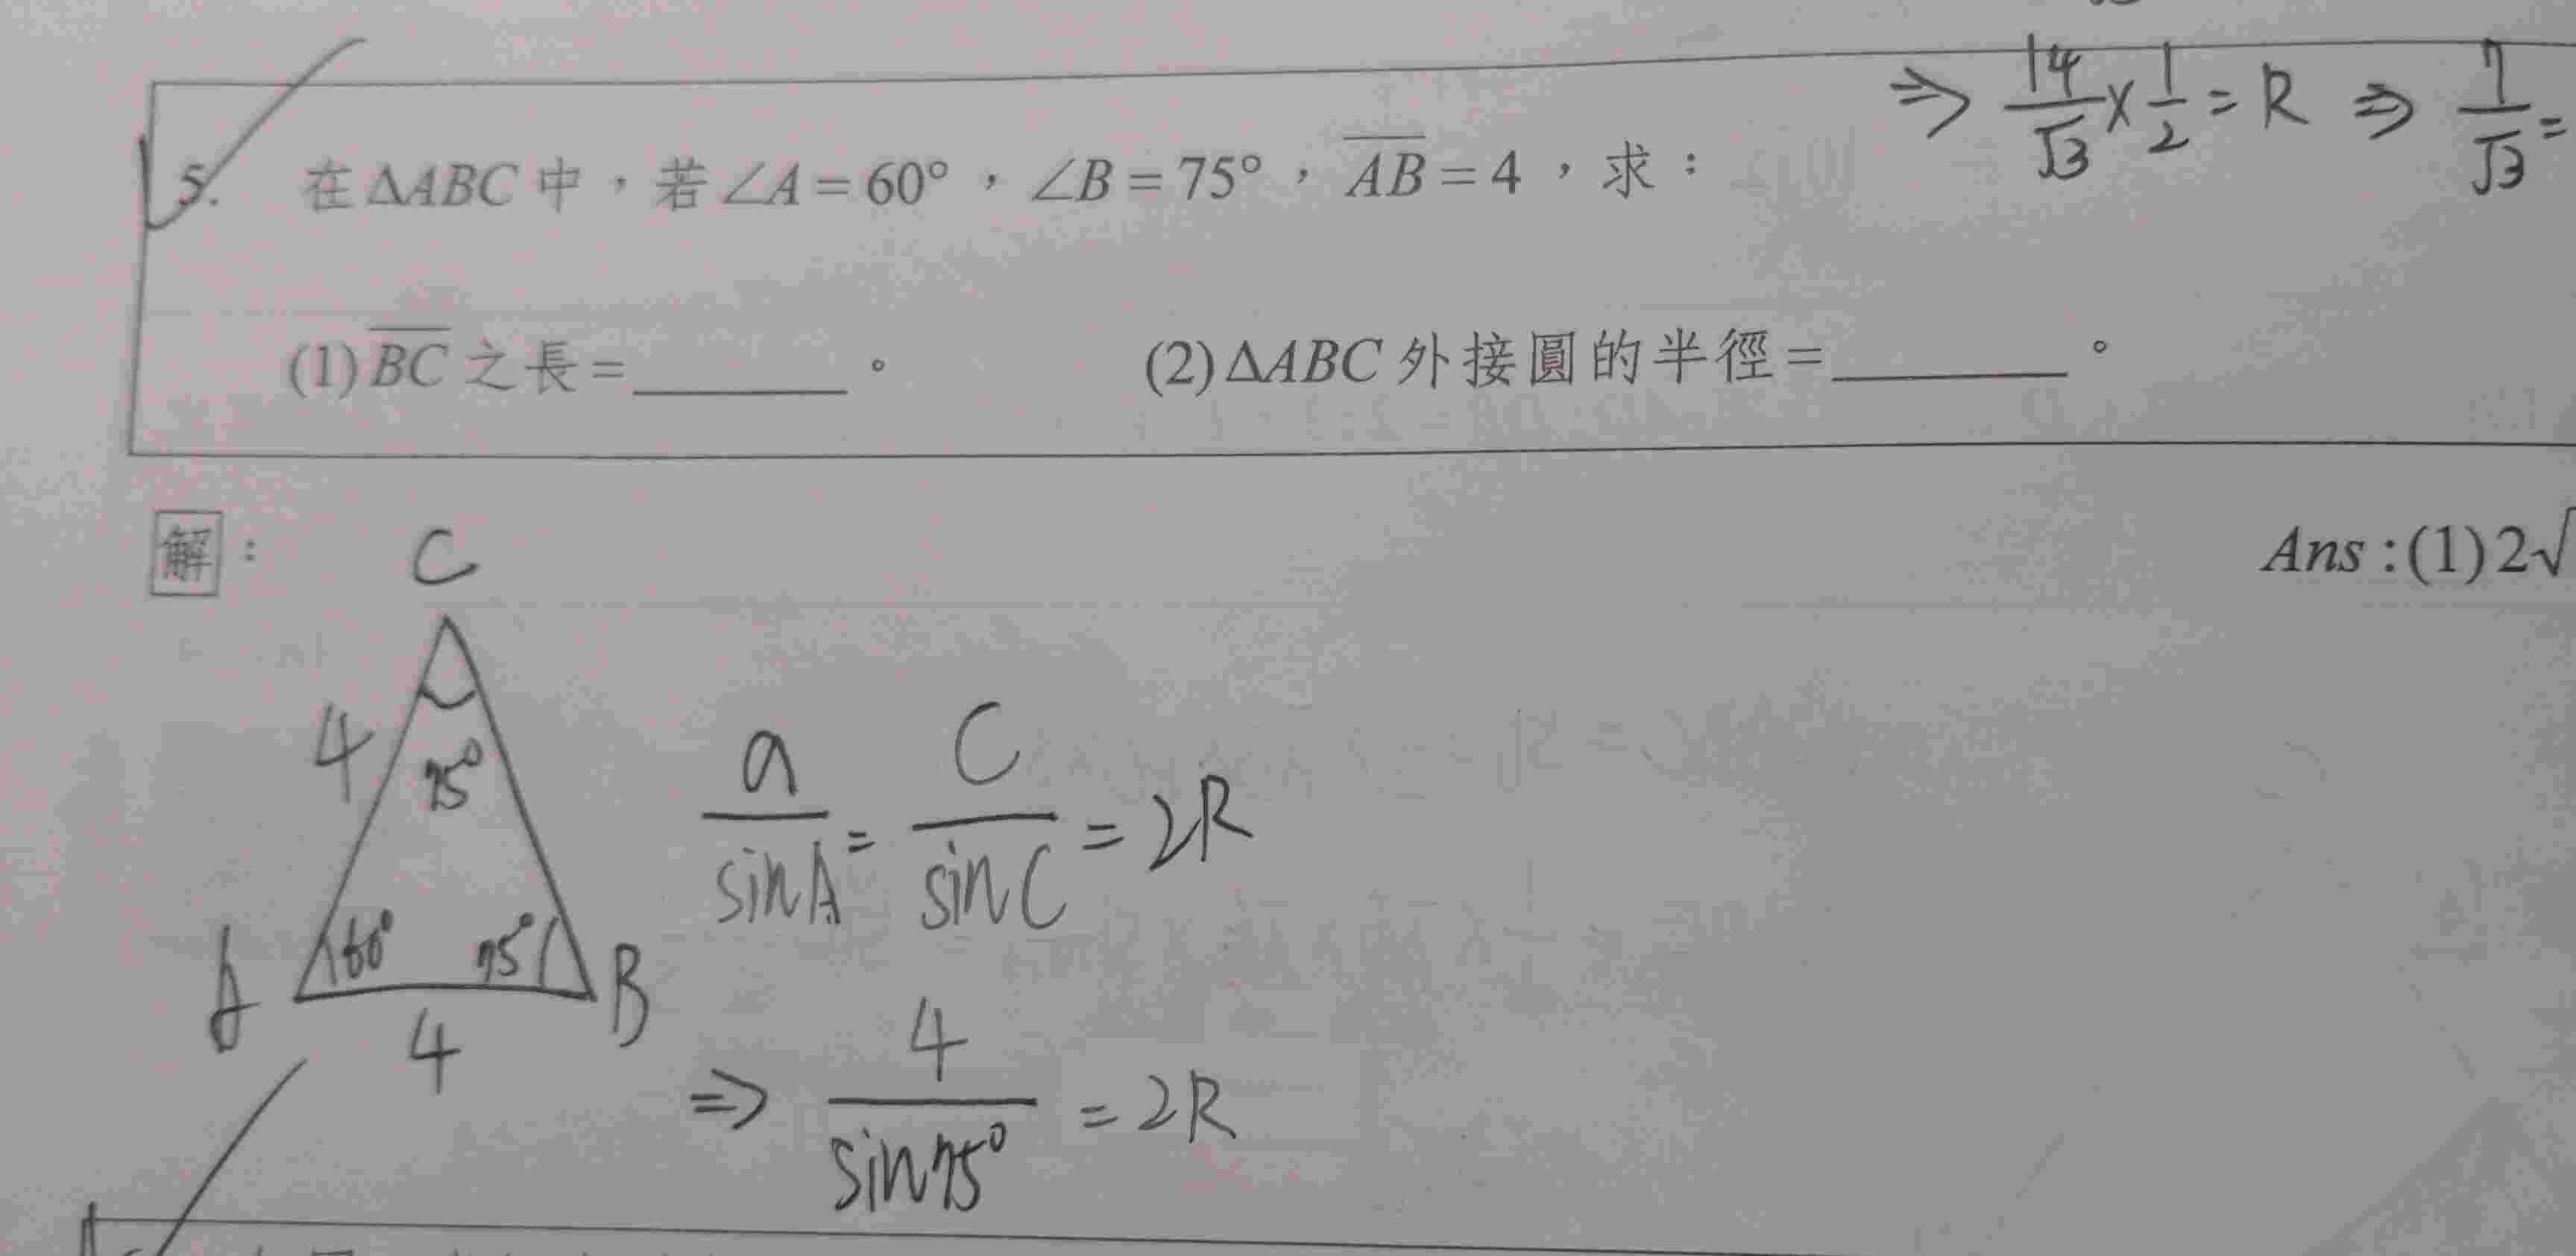 ⇒ 14/√3 × 1/2 = R ⇒ 7/√3 =
5. 在 ΔABC 中，若 ∠A = 60°，∠B = 75°，AB = 4，求：
(1) BC 之長 = ______ 。 (2) ΔABC 外接圓的半徑 = ______ 。
解：
Ans : (1) 2√
C
4
75°
a/sinA = c/sinC = 2R
A 60° 75° B
4
⇒ 4/sin75° = 2R